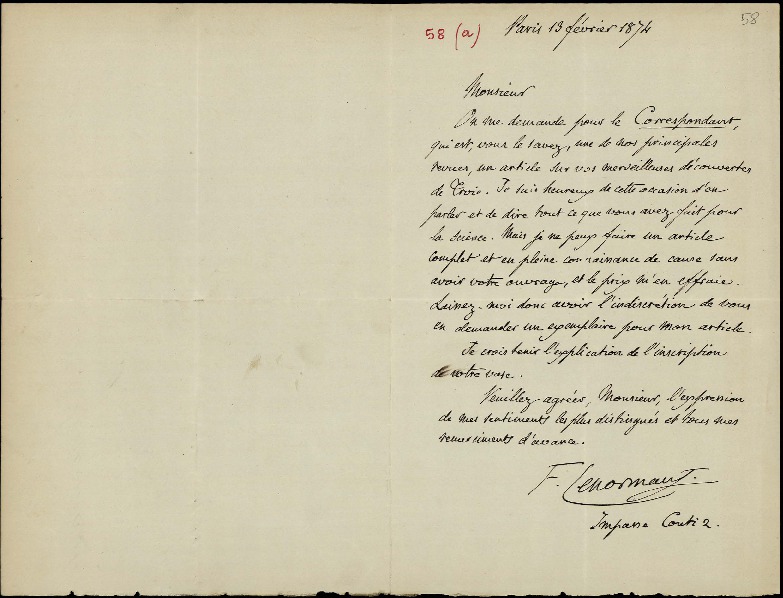 58
58 (a)
Paris 13 février 1874
Monsieur
On me demande pour le Correspondant,
qui est, vous le savez, une de nos principales
revues, un article sur vos merveilleuses découvertes
de Troie. Je suis heureux de cette occasion d'en
parler et de dire tout ce que vous avez fait pour
la science. Mais je ne peux faire un article
complet et en pleine connaissance de cause sans
avoir votre ouvrage, et le prix m'en effraie.
Laissez-moi donc avoir l'indiscrétion de vous
en demander un exemplaire pour mon article.
Je crois tenir l'explication de l'inscription
de votre vase.
Veuillez agréer, Monsieur, l'expression
de mes sentiments les plus distingués et tous mes
remerciments d'avance.
F. Lenormant.
Impasse Conti 2.